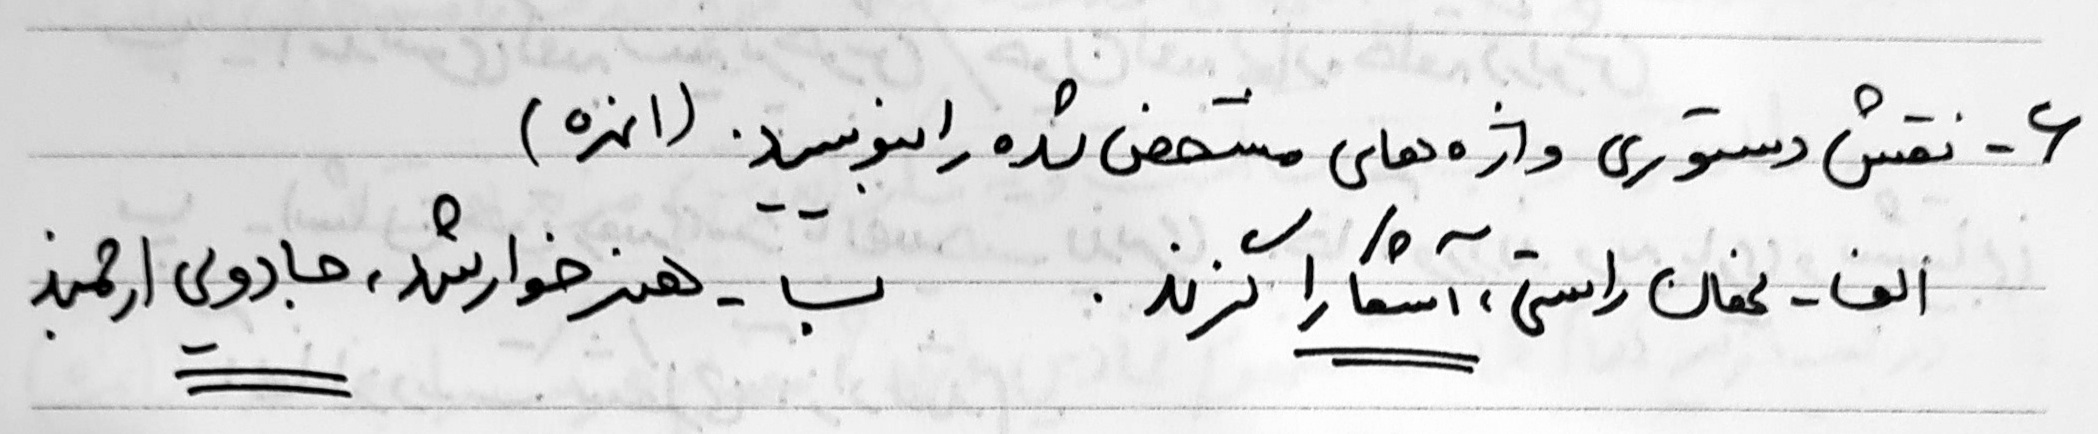 ۶- نقش دستوری واژه‌های مشخص شده را بنویسید. (۱ نمره)
الف- نهان راستی، آشکارا گزند. ب- هنر خوار شد، جادویی ارجمند